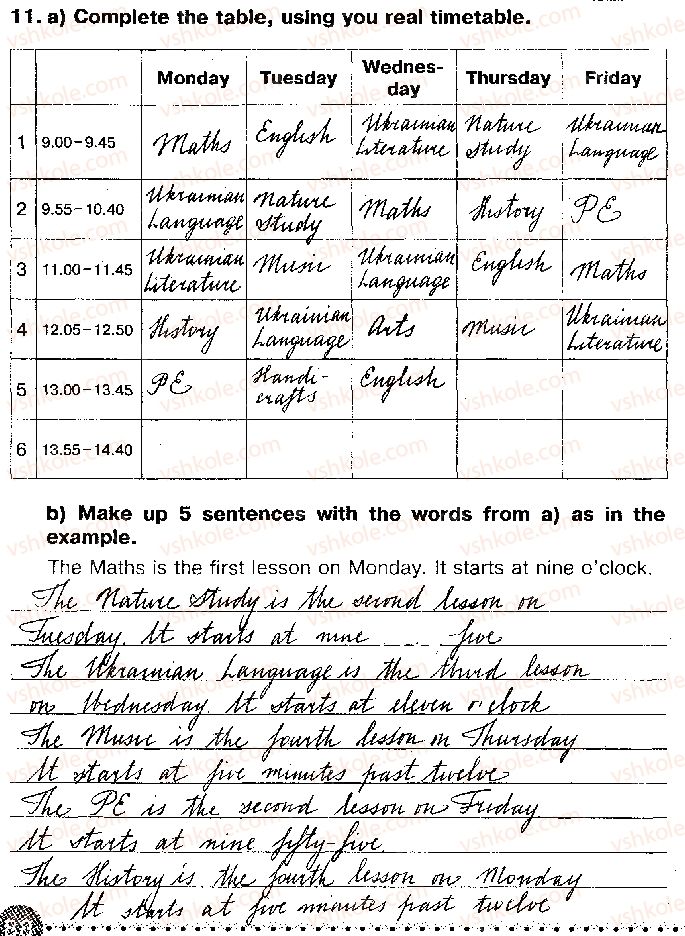 11. a) Complete the table, using you real timetable.
Monday Tuesday Wednes-day Thursday Friday
1 9.00–9.45 Maths English Ukrainian Literature Nature study Ukrainian Language
2 9.55–10.40 Ukrainian Language Nature study Maths History PE
3 11.00–11.45 Ukrainian Literature Music Ukrainian Language English Maths
4 12.05–12.50 History Ukrainian Language Arts Music Ukrainian Literature
5 13.00–13.45 PE Handi-crafts English
6 13.55–14.40
b) Make up 5 sentences with the words from a) as in the
example.
The Maths is the first lesson on Monday. It starts at nine o'clock.
The Nature study is the second lesson on
Tuesday. It starts at nine five
The Ukrainian Language is the third lesson
on Wednesday. It starts at eleven o'clock
The Music is the fourth lesson on Thursday
It starts at five minutes past twelve
The PE is the second lesson on Friday
It starts at nine fifty-five.
The History is the fourth lesson on Monday
It starts at five minutes past twelve